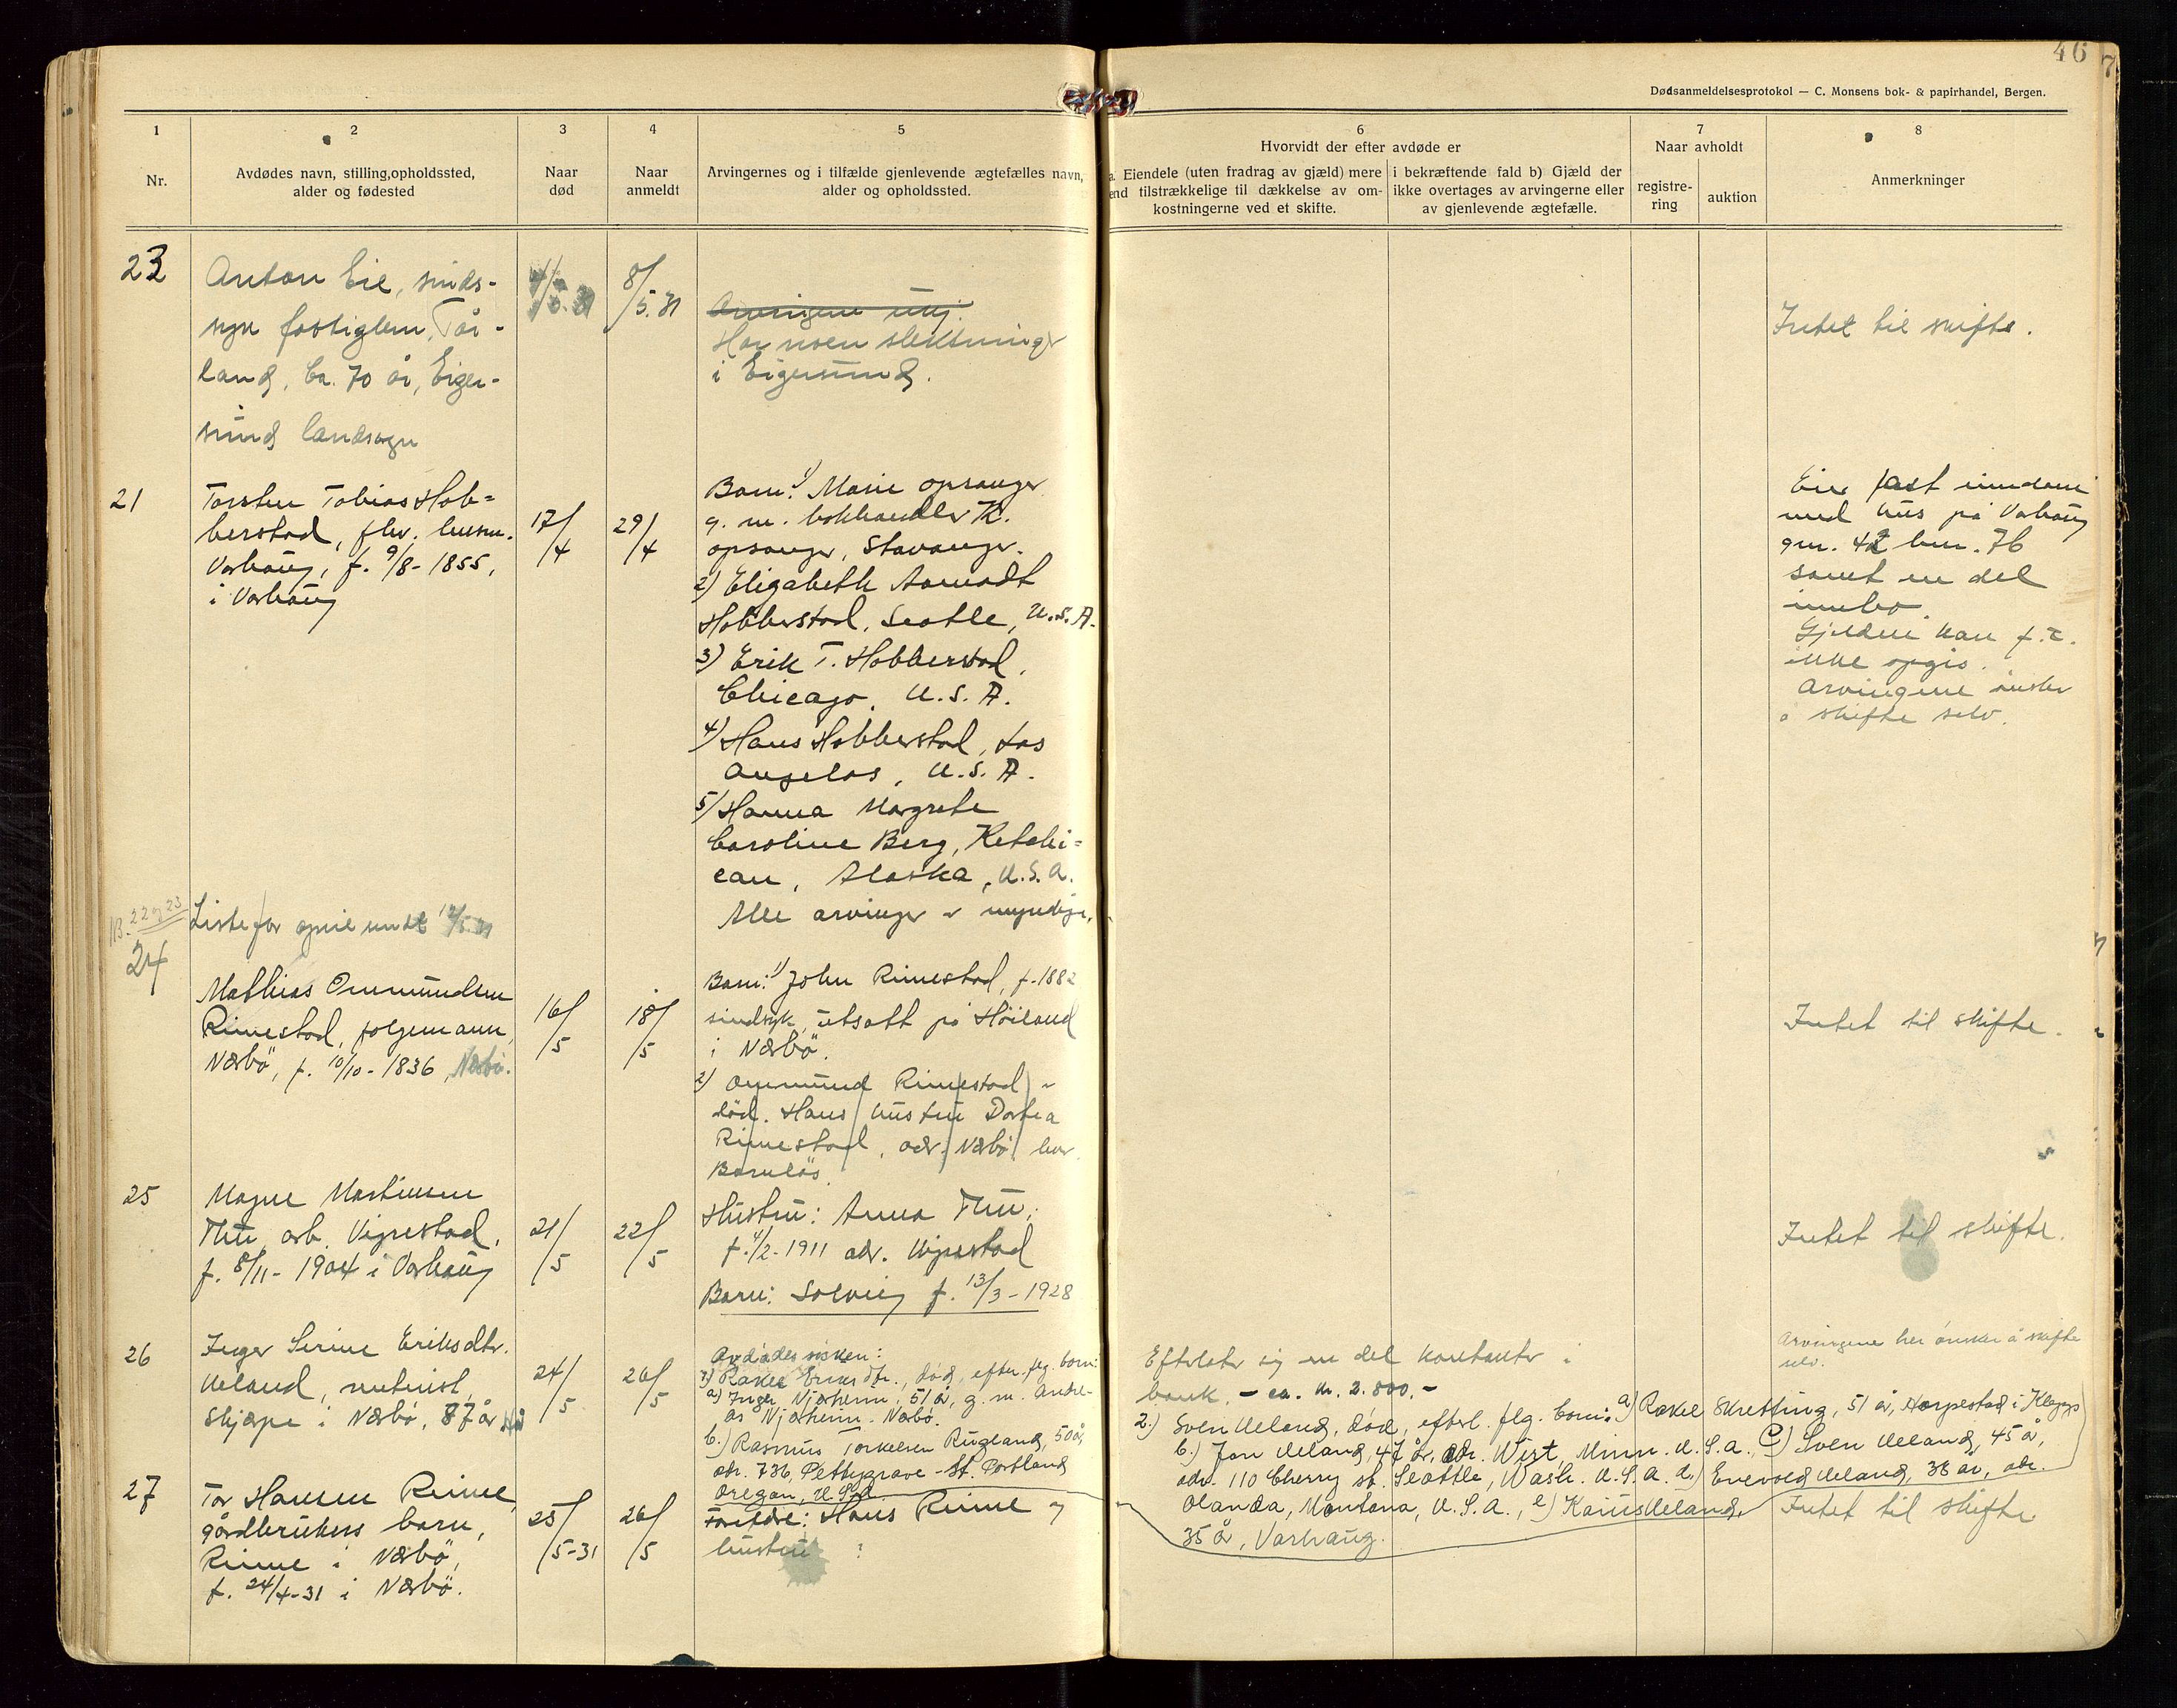 46
7
Dødsanmeldelsesprotokol — C. Monsens bok- & papirhandel, Bergen.
1
Nr.
2
Avdødes navn, stilling,opholdssted,
alder og fødested
3
Naar
død
4
Naar
anmeldt
5
Arvingernes og i tilfælde gjenlevende ægtefælles navn,
alder og opholdssted.
6
Hvorvidt der efter avdøde er
Eiendele (uten fradrag av gjæld) mere
end tilstrækkelige til dækkelse av om-
kostningerne ved et skifte.
i bekræftende fald b) Gjæld der
ikke overtages av arvingerne eller
av gjenlevende ægtefælle.
7
Naar avholdt
registre-
ring
auktion
8
Anmerkninger
23
Anton Eie, sinds-
syk
land, ca. 70 år, Eiger-
sund landsogn
8/5.31
Arvingene
Har noen slektninger
i Eigersund.
Intet til skifte.
21
Torsten Tobias Hob=
berstad, fhv.
Varhaug, f. 9/8-1855,
i Varhaug
17/4
29/4
Barn: 1) Marie Opsanger
g. m. bokhandler K.
Opsanger, Stavanger.
2) Elisabeth
Hobberstad, Seatle, U.S.A.
3) Erik T. Hobberstad,
Chicago, U.S.A.
4) Hans Hobberstad, Los
Angelos, U.S.A.
5) Hanna Margrete
Caroline Berg, Ketchi=
can, Alaska, U.S.A.
Alle arvinger er myndige.
Eier fast eiendom
med hus på Varhaug
gnr. 42 bnr. 76
samt en del
innbo.
Gjelden kan f.t.
ikke opgis.
Arvingene ønsker
å skifte selv.
NB. 22 og 23
Liste for april sendt 12/5.31
24
Mathias Ommundsen
Rimestad, folgemann,
Nærbö, f. 10/10-1836, Nærbö.
16/5
18/5
Barn: 1) John Rimestad, f. 1882
sindsyk, utsatt på Höiland
i Nærbö.
2) Ommund Rimestad er
död. Hans hustru Dortea
Rimestad, adr. Nærbö, lever.
Barnlös.
Intet til skifte.
25
Magne Martinsen
Thu, arb. Vigrestad,
f. 8/11-1904 i Varhaug
21/5
22/5
Hustru: Anna Thu,
f. 4/2-1911 adr. Vigrestad
Barn: Solveig f. 13/3-1928
Intet til skifte.
26
Inger Serine Eriksdtr.
Ueland, ugift,
Skjærpe i Nærbö, 87 år
24/5
26/5
Avdødes sösken:
1) Rakel Eriksdtr., död, efterl. flg. barn:
a) Inger Njærheim, 51 år, g. m. Andre-
as Njærheim, Nærbö.
b.) Rasmus Torkelsen Rugland, 50 år,
adr. 736, Pettygrove-St. Portland
Oregon, U.S.A.
Efterlater sig en del kontanter i
bank, - ca. kr. 2.800.-
2.) Sven Ueland, död, efterl. flg. barn: a) Rakel Skretting, 51 år, Horpestad i Klepp,
b.) Jon Ueland, 47 år, adr. Wirt, Minn. U.S.A., c) Sven Ueland, 45 år,
adr. 110 Cherry st. Seattle, Wash. U.S.A. d.) Enevold Ueland, 38 år, adr.
Olanda, Montana, U.S.A., e) Karius Ueland,
35 år, Varhaug.
Arvingene her ønsker å skifte
selv.
27
Tor Hansen Rime,
gårdbrukers barn,
Rime i Nærbö,
f. 24/4-31 i Nærbö.
25/5-31
26/5
Foreldre: Hans Rime og
hustru ?
Intet til skifte